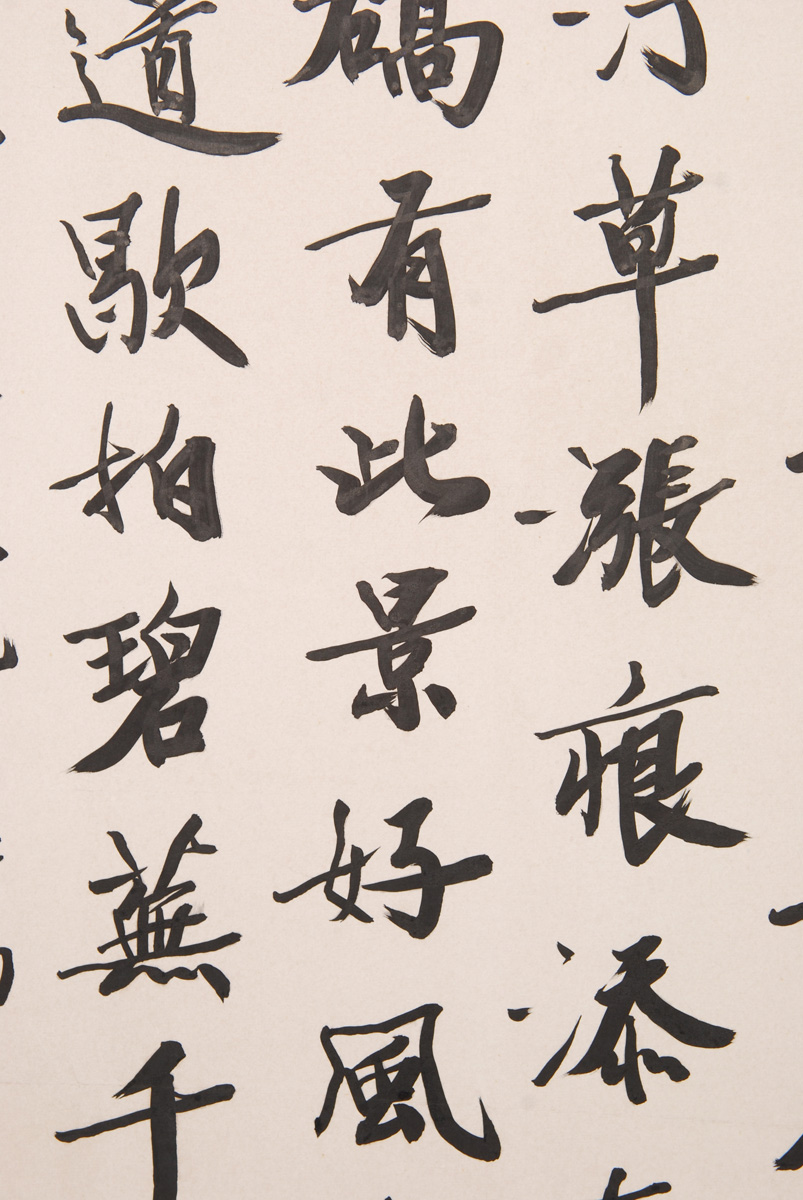 汀草漲痕添
礄有此景好風
道歇拍碧蕪千